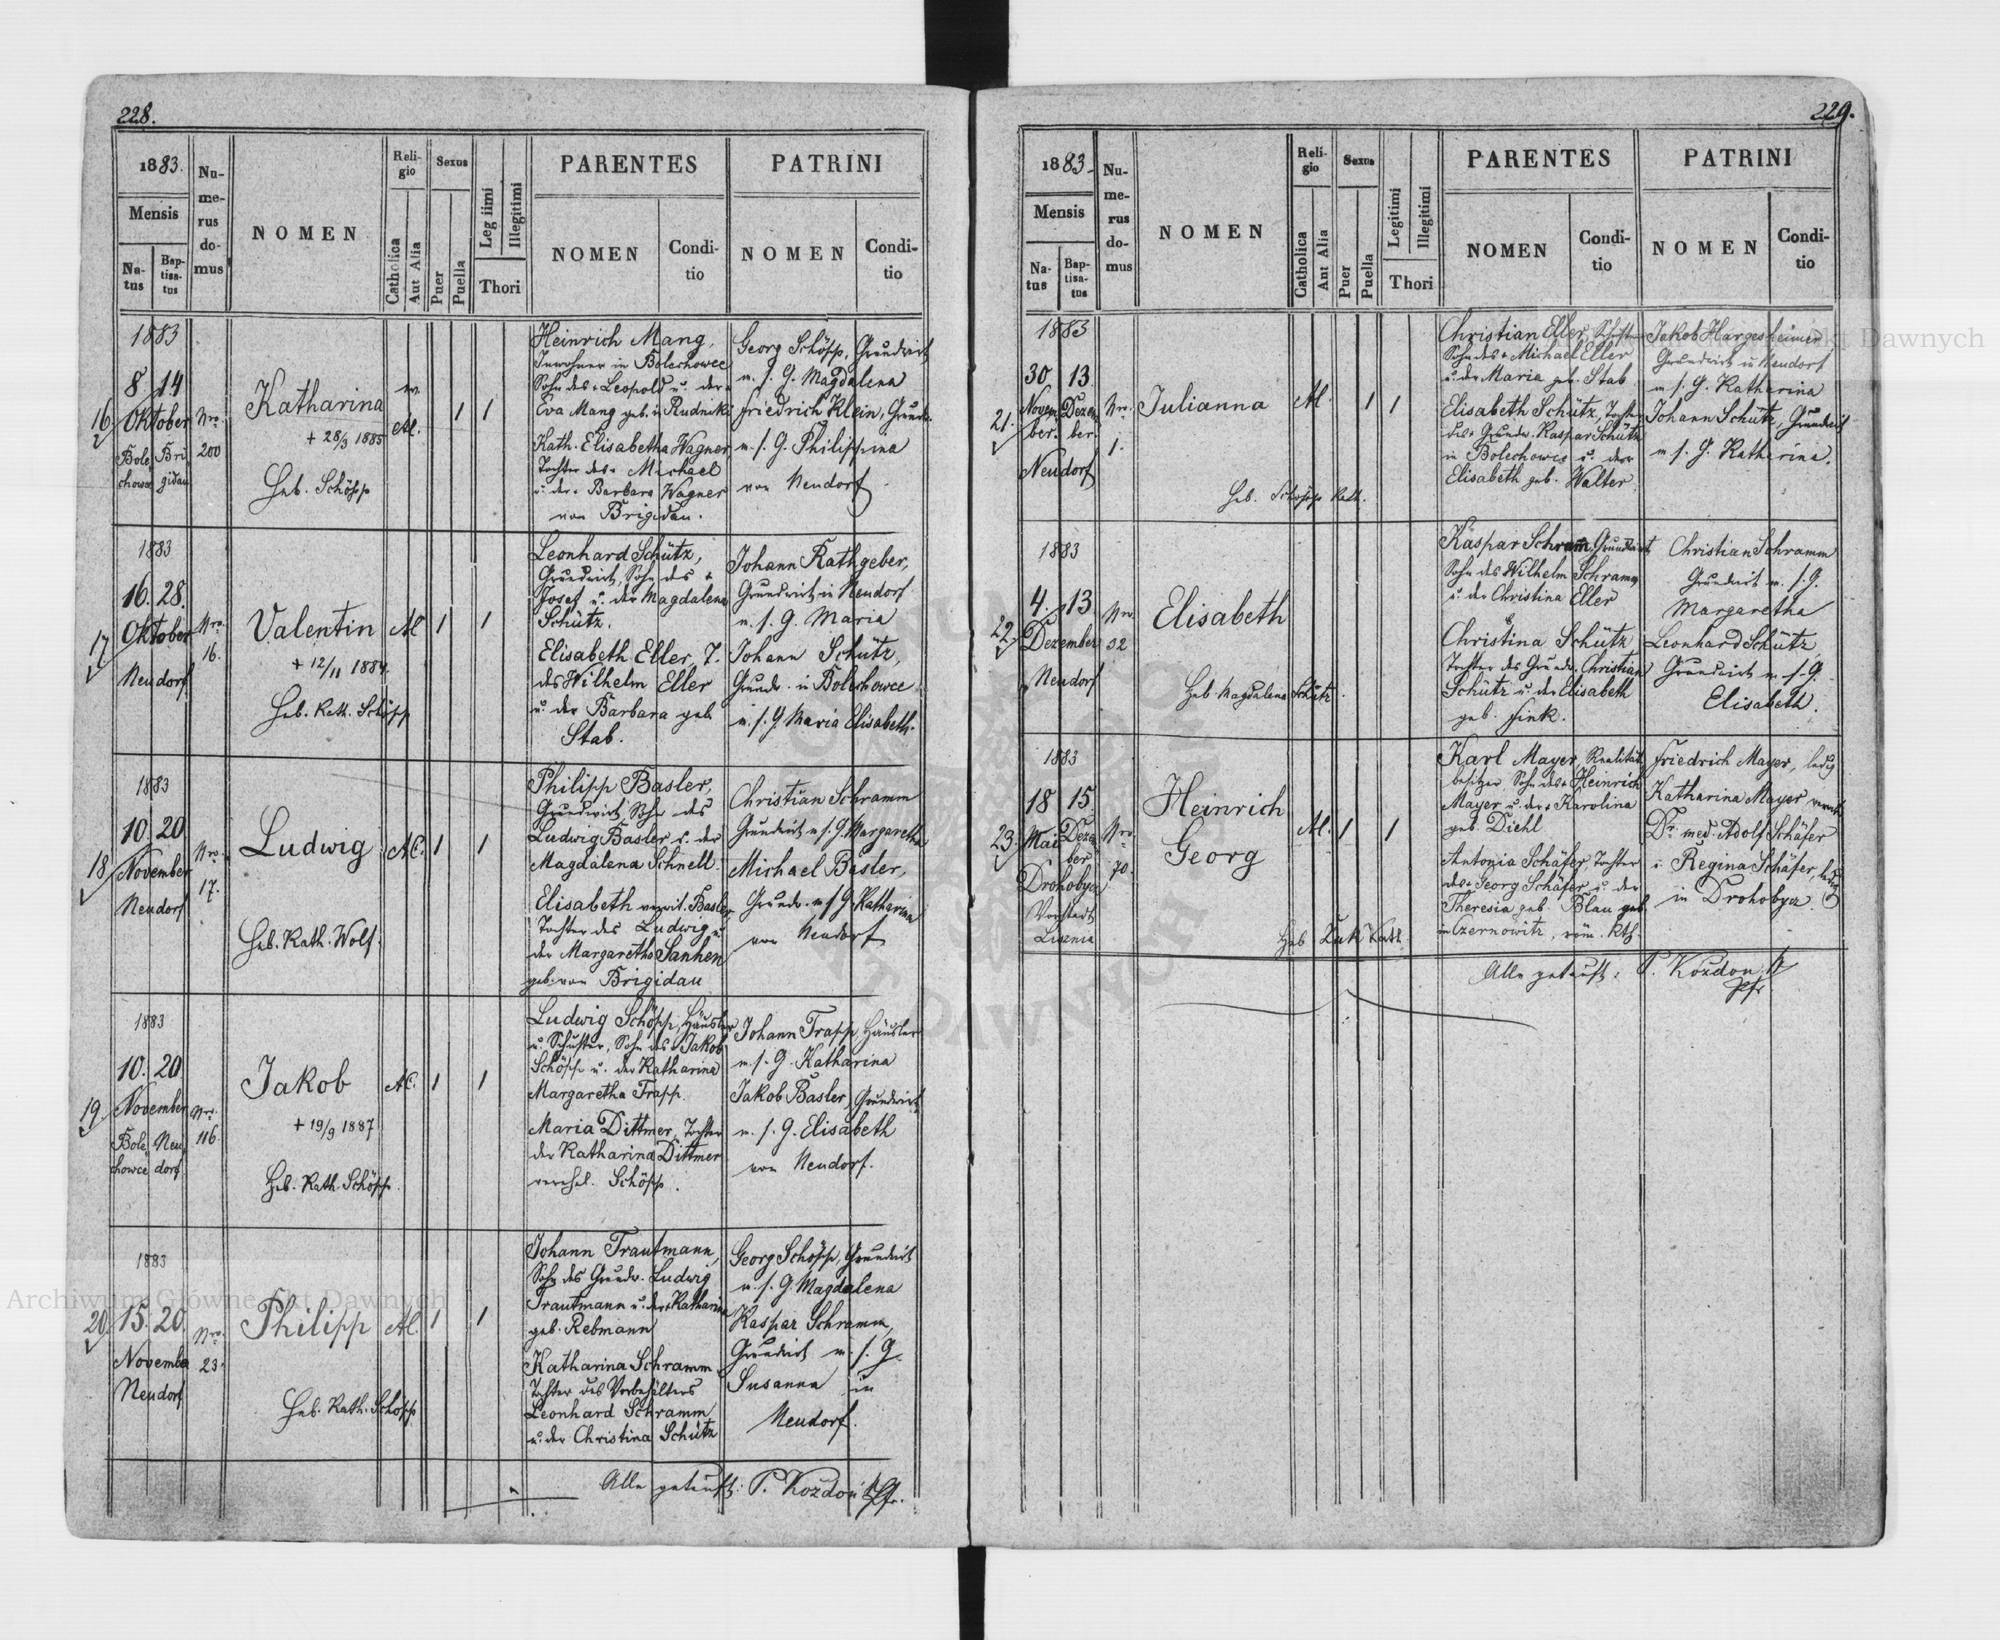 228.
1883.
Mensis
Na-
tus
Bap-
tisa-
tus
Nu-
me-
rus
do-
mus
NOMEN
Reli-
gio
Catholica
Aut Alia
Sexus
Puer
Puella
Legitimi
Illegitimi
Thori
PARENTES
NOMEN
Condi-
tio
PATRINI
NOMEN
Condi-
tio
16
1883
8 14
Oktober
Bole Bri
chowce gidau
Nro.
200
Katharina
+ 28/3 1885
Heb. Schöpp
ev.
AC.
1 1
Heinrich Mang,
Inwohner in Bolechowce
Sohn des + Leopold u. der
Eva Mang geb. in Rudniki
Kath. Elisabetha Wagner
Tochter des + Michael
u. der + Barbara Wagner
von Brigidau.
Georg Schöpp, Grundwirt
u. s. G. Magdalena
Friedrich Klein, Grundw.
u. s. G. Philippina
von Neudorf.
17
1883
16. 28.
Oktober
Neudorf
Nro.
16.
Valentin
+ 12/11 1884.
Heb. Kath. Schöpp
AC
1 1
Leonhard Schütz,
Grundwirt, Sohn des +
Josef u. der Magdalena
Schütz.
Elisabeth Eller, T.
des Wilhelm Eller
u. der Barbara geb.
Stab.
Johann Rathgeber,
Grundwirt in Neudorf
u. s. G. Maria
Johann Schütz,
Grundw. in Bolechowce
u. s. G. Maria Elisabeth.
18
1883
10. 20
November
Neudorf
Nro.
17.
Ludwig
Heb. Kath. Wolf.
AC.
1 1
Philipp Basler,
Grundwirt, Sohn des
Ludwig Basler u. der
Magdalena Schnell.
Elisabeth verwit. Basler
Tochter des Ludwig u.
der Margaretha Sanhen
geb. von Brigidau
Christian Schramm
Grundwirt u. s. G. Margaretha
Michael Basler,
Grundw. u. s. G. Katharina
von Neudorf
19
1883
10. 20
November
Bole Neu
chowce dorf
Nro.
116.
Jakob
+ 19/9 1887
Heb. Kath. Schöpp.
AC.
1 1
Ludwig Schöpp, Häusler
u. Schuster, Sohn des + Jakob
Schöpp u. der Katharina
Margaretha Trapp.
Maria Dittmer, Tochter
der Katharina Dittmer
verehel. Schöpp.
Johann Trapp, Häusler
u. s. G. Katharina
Jakob Basler, Grundwirt
u. s. G. Elisabeth
von Neudorf.
20
1883
15. 20.
November
Neudorf
Nro.
23.
Philipp
Heb. Kath. Schöpp
AC.
1 1
Johann Trautmann,
Sohn des Grundw. Ludwig
Trautmann u. der + Katharina
geb. Rebmann
Katharina Schramm
Tochter des Vorbehälters
Leonhard Schramm
u. der Christina Schütz
Georg Schöpp, Grundwirt
u. s. G. Magdalena
Kaspar Schramm,
Grundwirt u. s. G.
Susanna in
Neudorf.
Alle getauft: P. Kozdon Pfr.
229.
1883.
Mensis
Na-
tus
Bap-
tisa-
tus
Nu-
me-
rus
do-
mus
NOMEN
Reli-
gio
Catholica
Aut Alia
Sexus
Puer
Puella
Legitimi
Illegitimi
Thori
PARENTES
NOMEN
Condi-
tio
PATRINI
NOMEN
Condi-
tio
21.
1883
30. 13.
Novem Dezem
ber. ber.
Neudorf
Nro.
1.
Julianna
Heb. Schöpp Kath.
AC.
1 1
Christian Eller,
Sohn des + Michael Eller
u. der Maria geb. Stab
Elisabeth Schütz, Tocht.
des + Grundw. Kaspar Schütz
in Bolechowce u. der
Elisabeth geb. Walter.
Jakob Hargesheimer
Grundwirt in Neudorf
u. s. G. Katharina
Johann Schütz, Grundwirt
u. s. G. Katharina.
22.
1883
4. 13.
Dezember
Neudorf
Nro
32
Elisabeth
Heb. Magdalena Schütz.
Kaspar Schramm, Grundwirt
Sohn des Wilhelm Schramm
u. der Christina Eller
Christina Schütz
Tochter des Grundw. Christian
Schütz u. der Elisabeth
geb. Fink.
Christian Schramm
Grundwirt u. s. G.
Margaretha
Leonhard Schütz,
Grundwirt u. s. G.
Elisabeth.
23.
1883
18 15.
Mai Dezem
ber
Drohobycz
Vorstadt
Lisznia
Nro.
70.
Heinrich
Georg
Heb Zuk Kath.
AC.
1 1
Karl Mayer, Realitäts
besitzer, Sohn des + Heinrich
Mayer u. der + Karolina
geb. Diehl
Antonia Schäfer, Tochter
des + Georg Schäfer u. der
Theresia geb. Blau geb.
in Czernowitz, röm. kth.
Friedrich Mayer, ledig
Katharina Mayer verwit.
Dr. med. Adolf Schäfer
u. Regina Schäfer, ledig
in Drohobycz.
Alle getauft: P. Kozdon
Pfr
Archiwum Główne Akt Dawnych
Akt Dawnych